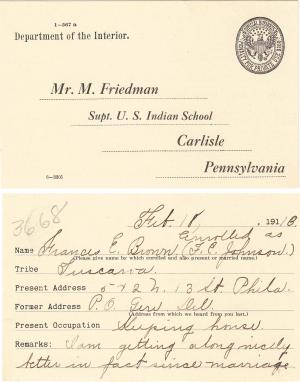 1-567 a
Department of the Interior.
Mr. M. Friedman
Supt. U. S. Indian School
Carlisle
Pennsylvania
3668
Feb. 18, 1913.
Enrolled as
Name Frances E. Brown (F. E. Johnson)
(Please give name by which enrolled and also present or married name.)
Tribe Tuscarora.
Present Address 542 N. 13 St. Phila.
Former Address P.O. Del.
(Address from which we heard from you last.)
Present Occupation Keeping house.
Remarks: I am getting along nicely
better in fact since marriage